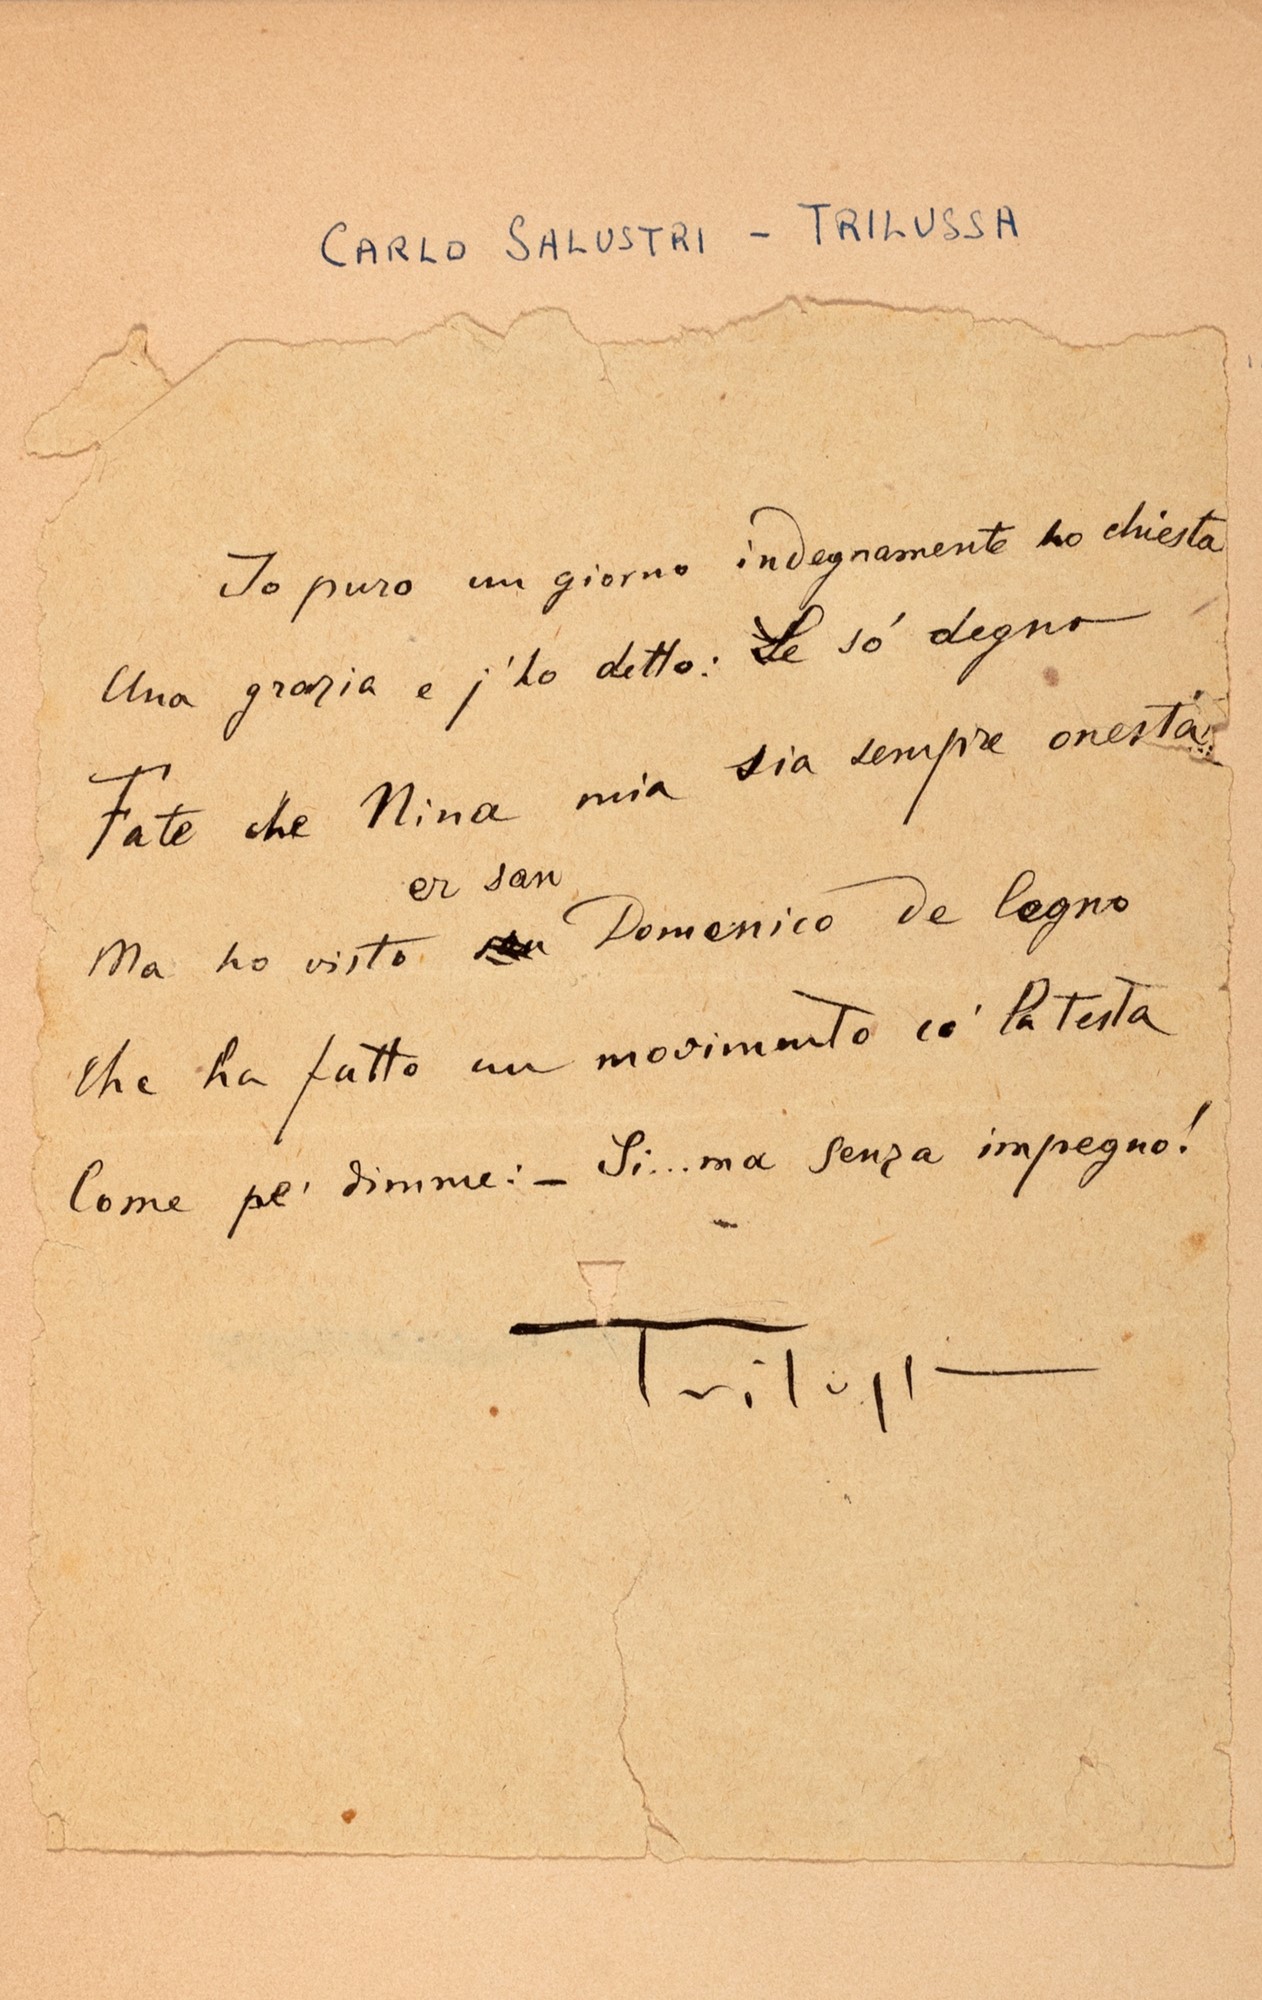 CARLO SALUSTRI - TRILUSSA
Io puro un giorno indegnamente ho chiesta
Una grazia e j'ho detto: Se só degno
Fate che Nina mia sia sempre onesta
er san
Ma ho visto Domenico de legno
Che ha fatto un movimento co' la testa
Come pe' dimme: — Si... ma senza impegno!
Trilussa